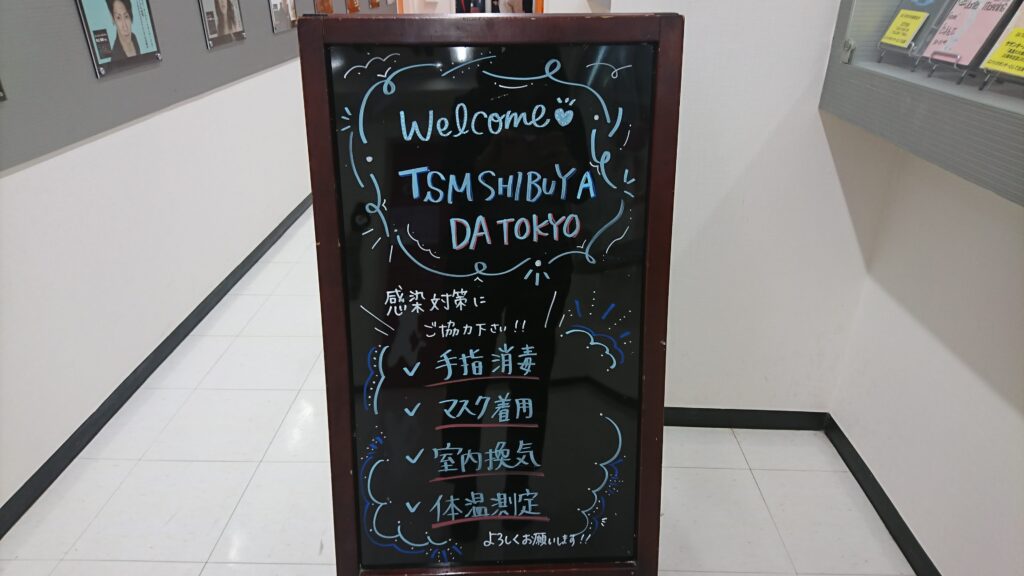 Welcome
TSM SHIBUYA
DA TOKYO
感染対策に
ご協力下さい!!
✓ 手指消毒
✓ マスク着用
✓ 室内換気
✓ 体温測定
よろしくお願いします!!